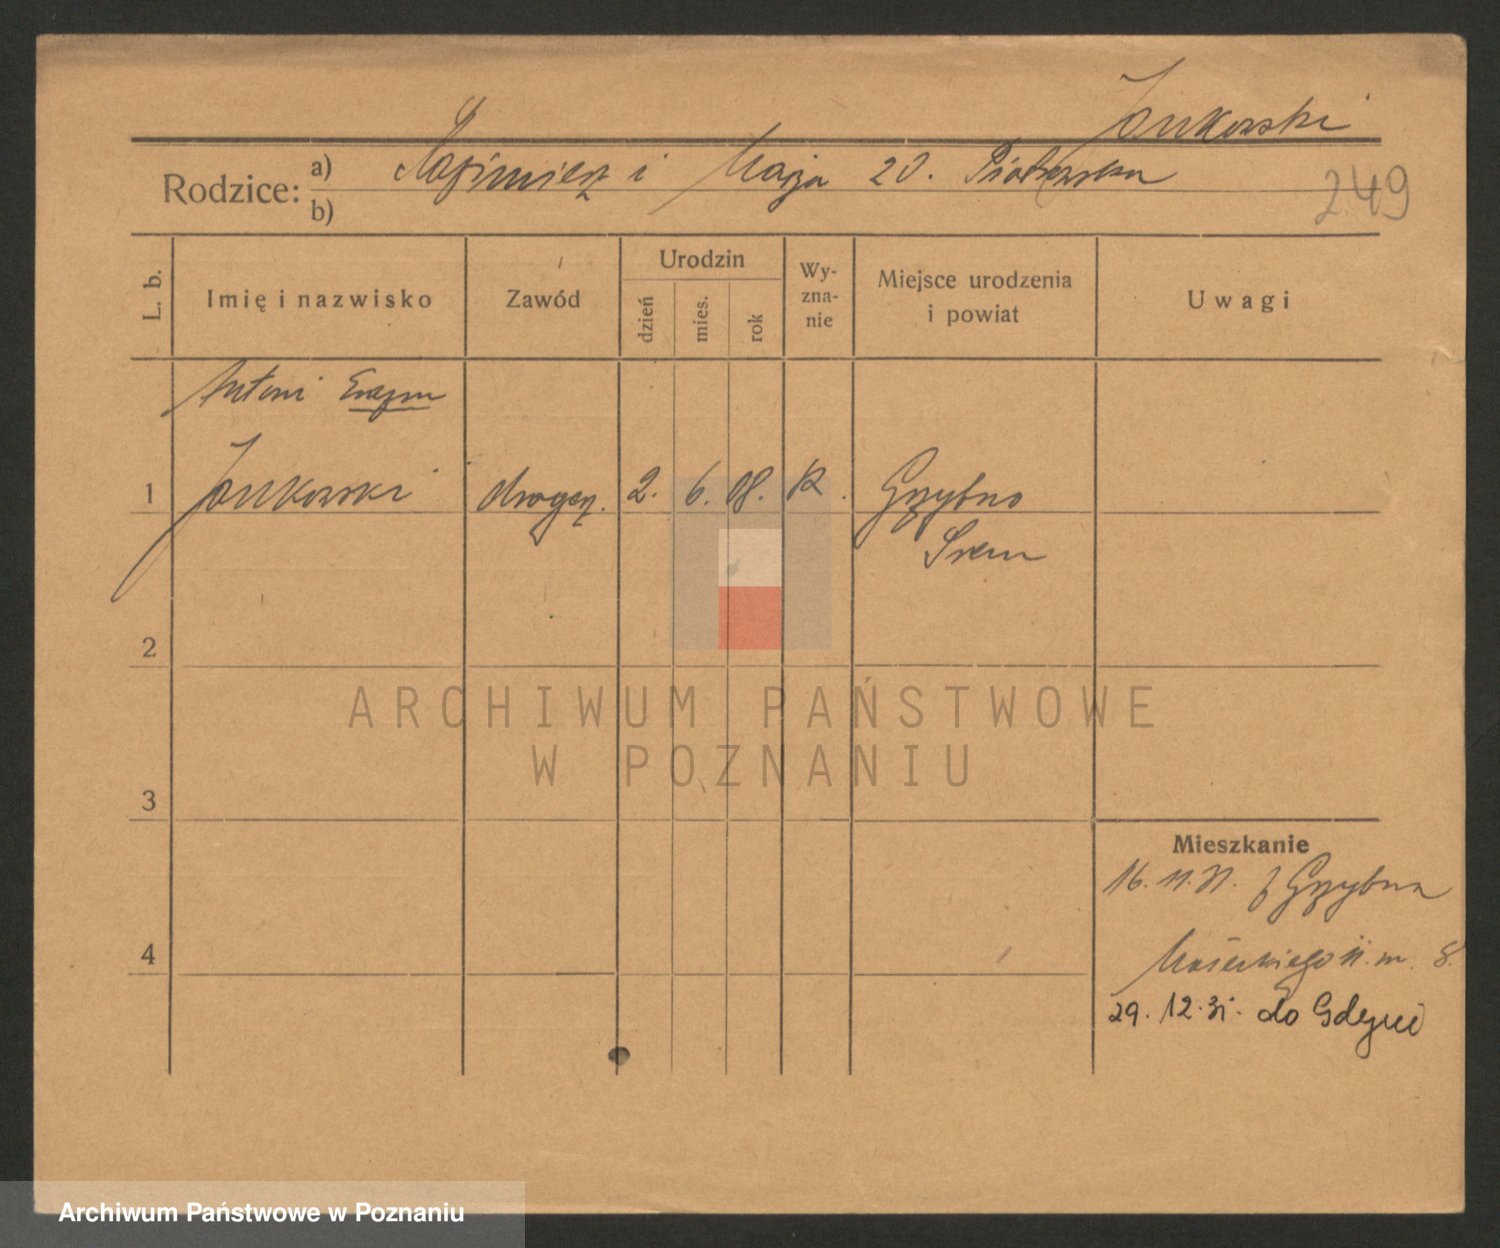 Jankowski
Rodzice: a) Kazimierz i Marja zd. Piotrowska
b)
249
L. b.
Imię i nazwisko
Zawód
Urodzin
dzień
mies.
rok
Wy-
zna-
nie
Miejsce urodzenia
i powiat
Uwagi
Antoni Erazm
1 Jankowski drogerz. 2. 6. 08. K. Grzybno
Śrem
2
ARCHIWUM PAŃSTWOWE
W POZNANIU
3
Mieszkanie
16. 11. 31. z Grzybna
4
m. 8.
29. 12. 31. do Gdyni
Archiwum Państwowe w Poznaniu